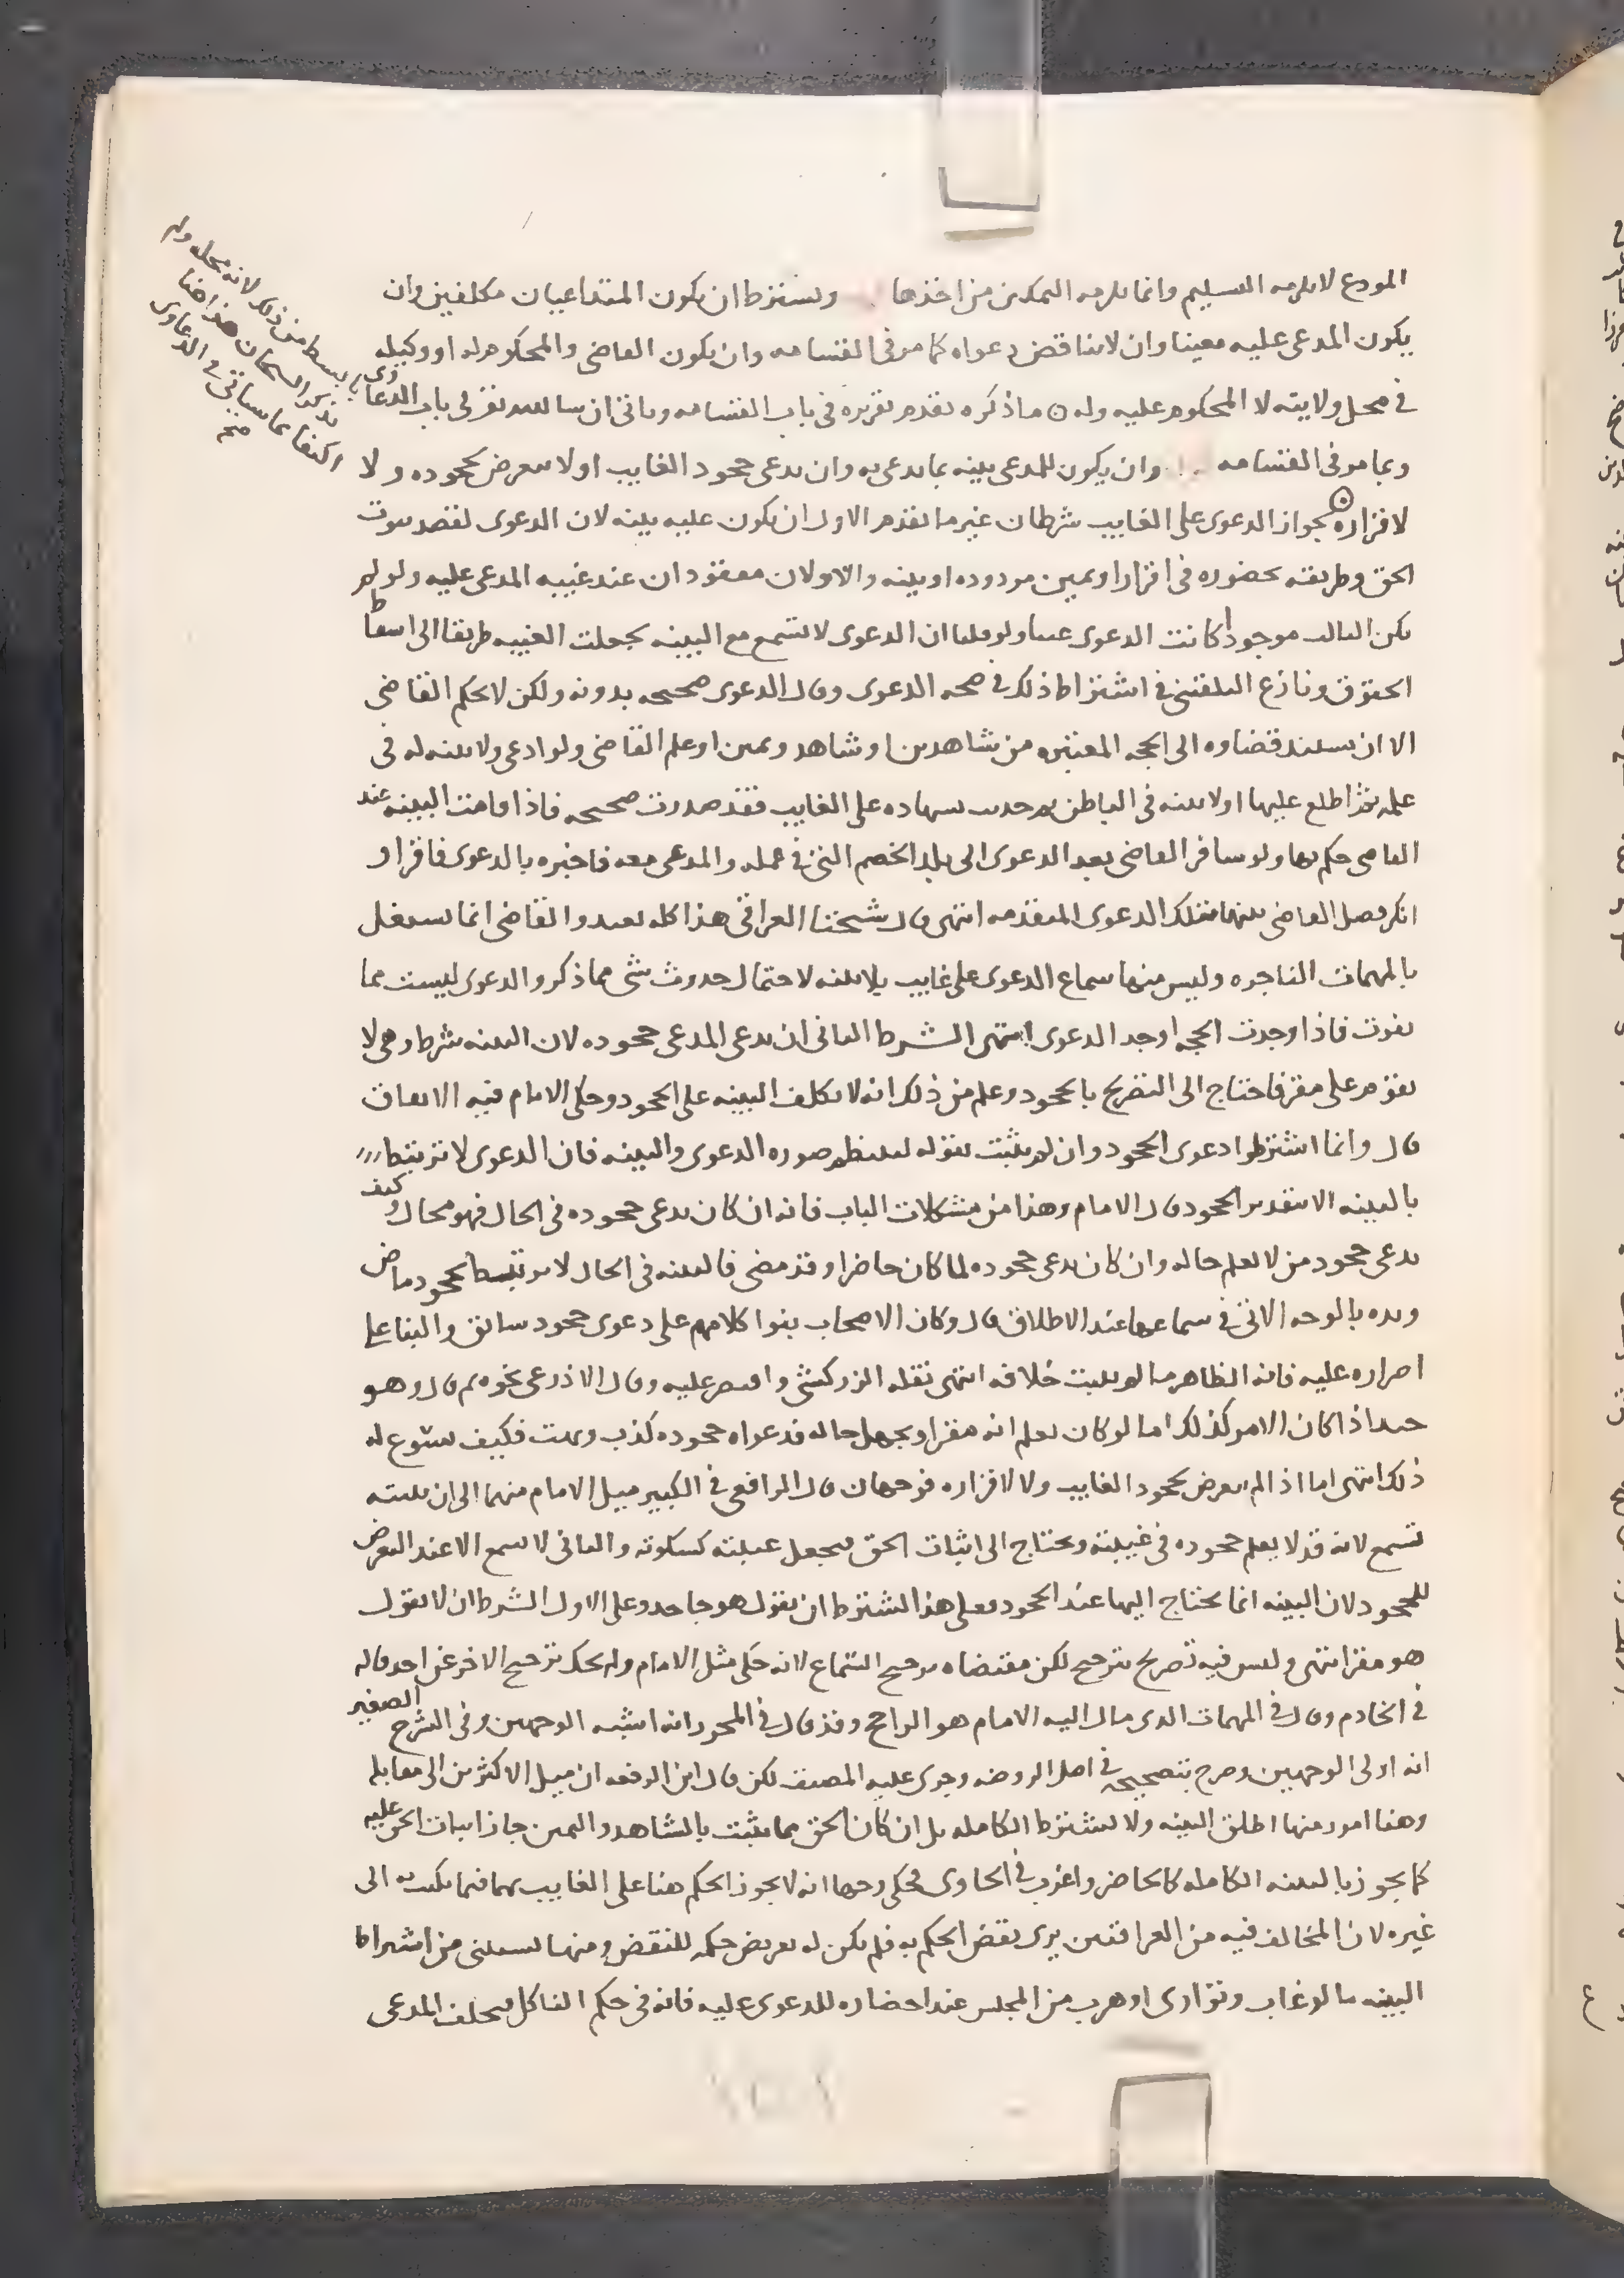 المودع لا يلزمه التسليم وانما يلزمه التمكين من اخذها ويشترط ان يكون المتداعيان مكلفين وان
يكون المدعى عليه معينا وان لا يناقض دعواه كما مر في القسامه وان يكون القاضي والمحكوم له او وكيله
في محل ولايته لا المحكوم عليه وله ه ما ذكره تقدم تقريره في باب القسامه وياتي ان شا الله تعالى في باب الدعاوى
وبما مر في القسامه وان يكون للمدعي بينه بما يدعي به وان يدعي جحود الغايب او لا يتعرض لجحوده ولا
لاقراره لجواز الدعوى على الغايب شرطان غير ما تقدم الاول ان يكون عليه بينه لان الدعوى لقصد ثبوت
الحق وطريقه محصوره في اقرار او يمين مردوده او بينه والاولان مفقودان عند غيبه المدعى عليه ولو لم
يكن الثالث موجودا كانت الدعوى عبثا ولو قلنا ان الدعوى لا تسمع مع البينه لجعلت الغيبه طريقا الى اسقاط
الحقوق ونازع البلقيني في اشتراط ذلك في صحه الدعوى وقال الدعوى صحيحه بدونه ولكن لا يحكم القاضي
الا ان يستند قضاوه الى الحجه المعتبره من شاهدين او شاهد ويمين او علم القاضي ولو ادعى ولا بينه له في
علمه ثم اطلع عليها او لا بينه في الباطن ثم حدثت شهاده على الغايب فقد صدرت صحيحه فاذا اقامت البينه عند
القاضي حكم بها ولو سافر القاضي بعد الدعوى الى بلد الخصم التي في عمله والمدعي معه فاخبره بالدعوى فاقر او
انكر فصل القاضي بينهما بتلك الدعوى المتقدمه انتهى قال شيخنا العراقي هذا كله بعيد والقاضي انما يشتغل
بالمهمات الناجزه وليس منها سماع الدعوى على غايب بلا بينه لاحتمال حدوث شي مما ذكر والدعوى ليست مما
يفوت فاذا وجدت الحجه اوجد الدعوى انتهى الشرط الثاني ان يدعي المدعي جحوده لان البينه شرط وهي لا
تقوم على مقر فاحتاج الى التصريح بالجحود وعلم من ذلك انه لا يكلف البينه على الجحود وحكى الامام فيه الاتفاق
قال وانما اشترطوا دعوى الجحود وان لم يثبت بقوله لينتظم صوره الدعوى والبينه فان الدعوى لا ترتبط
بالبينه الا بتقدير الجحود قال الامام وهذا من مشكلات الباب فانه ان كان يدعي جحوده في الحال فهو محال وكيف
يدعي جحود من لا يعلم حاله وان كان يدعي جحوده لما كان حاضرا وقد مضى فالبينه في الحال لا ترتبط بجحود ماض
بالوجه الاتي في سماعها عند الاطلاق قال وكان الاصحاب بنوا كلامهم على دعوى جحود سابق والبنا على
اصراره عليه فانه الظاهر ما لم يثبت خلافه انتهى نقله الزركشي واقتصر عليه وقال الاذرعي نحوه ثم قال وهو
حسن اذا كان الامر كذلك اما لو كان يعلم انه مقر او يجهل حاله فدعواه جحوده كذب وبهت فكيف يسوغ له
ذلك انتهى اما اذا لم يتعرض لجحود الغايب ولا لاقراره فوجهان قال الرافعي في الكبير ميل الامام منهما الى ان بينته
تسمع لانه قد لا يعلم جحوده في غيبته ويحتاج الى اثبات الحق فيجعل غيبته كسكوته والثاني لا تسمع الا عند التعرض
للجحود لان البينه انما يحتاج اليها عند الجحود فعلى هذا اشترط ان يقول هو جاحد وعلى الاول الشرط ان لا يقول
هو مقر انتهى وليس فيه تصريح بترجيح لكن مقتضاه ترجيح السماع لانه حكى مثل الامام ولم يحك ترجيح الاخر عن احد قاله
في الخادم وقال في المهمات الذي مال اليه الامام هو الراجح وقد قال في المحرر انه اشبه الوجهين وفي الشرح الصغير
انه اولى الوجهين وصرح بتصحيحه في اصل الروضه وجرى عليه المصنف لكن قال ابن الرفعه ان ميل الاكثرين الى مقابله
وهنا امور منها اطلق البينه ولا يشترط الكامله بل ان كان الحق مما يثبت بالشاهد واليمين جاز اثبات الحق عليه
كما يجوز بالبينه الكامله كالحاضر واغرب في الحاوي فحكى وجها انه لا يجوز الحكم هنا على الغايب بهما فيما يكتب به الى
غيره لان المخالف فيه من العراقيين يرى نقض الحكم به فلم يكن له تعريض حكمه للنقض ومنها يستثنى من اشتراط
البينه ما لو غاب وتوارى او هرب من المجلس عند احضاره للدعوى عليه فانه في حكم الناكل فيحلف المدعي
بابسط من ذلك لانه محله ولم
يذكر الشيخان هذا هنا
اكتفا بما سياتي في الدعاوى
صح